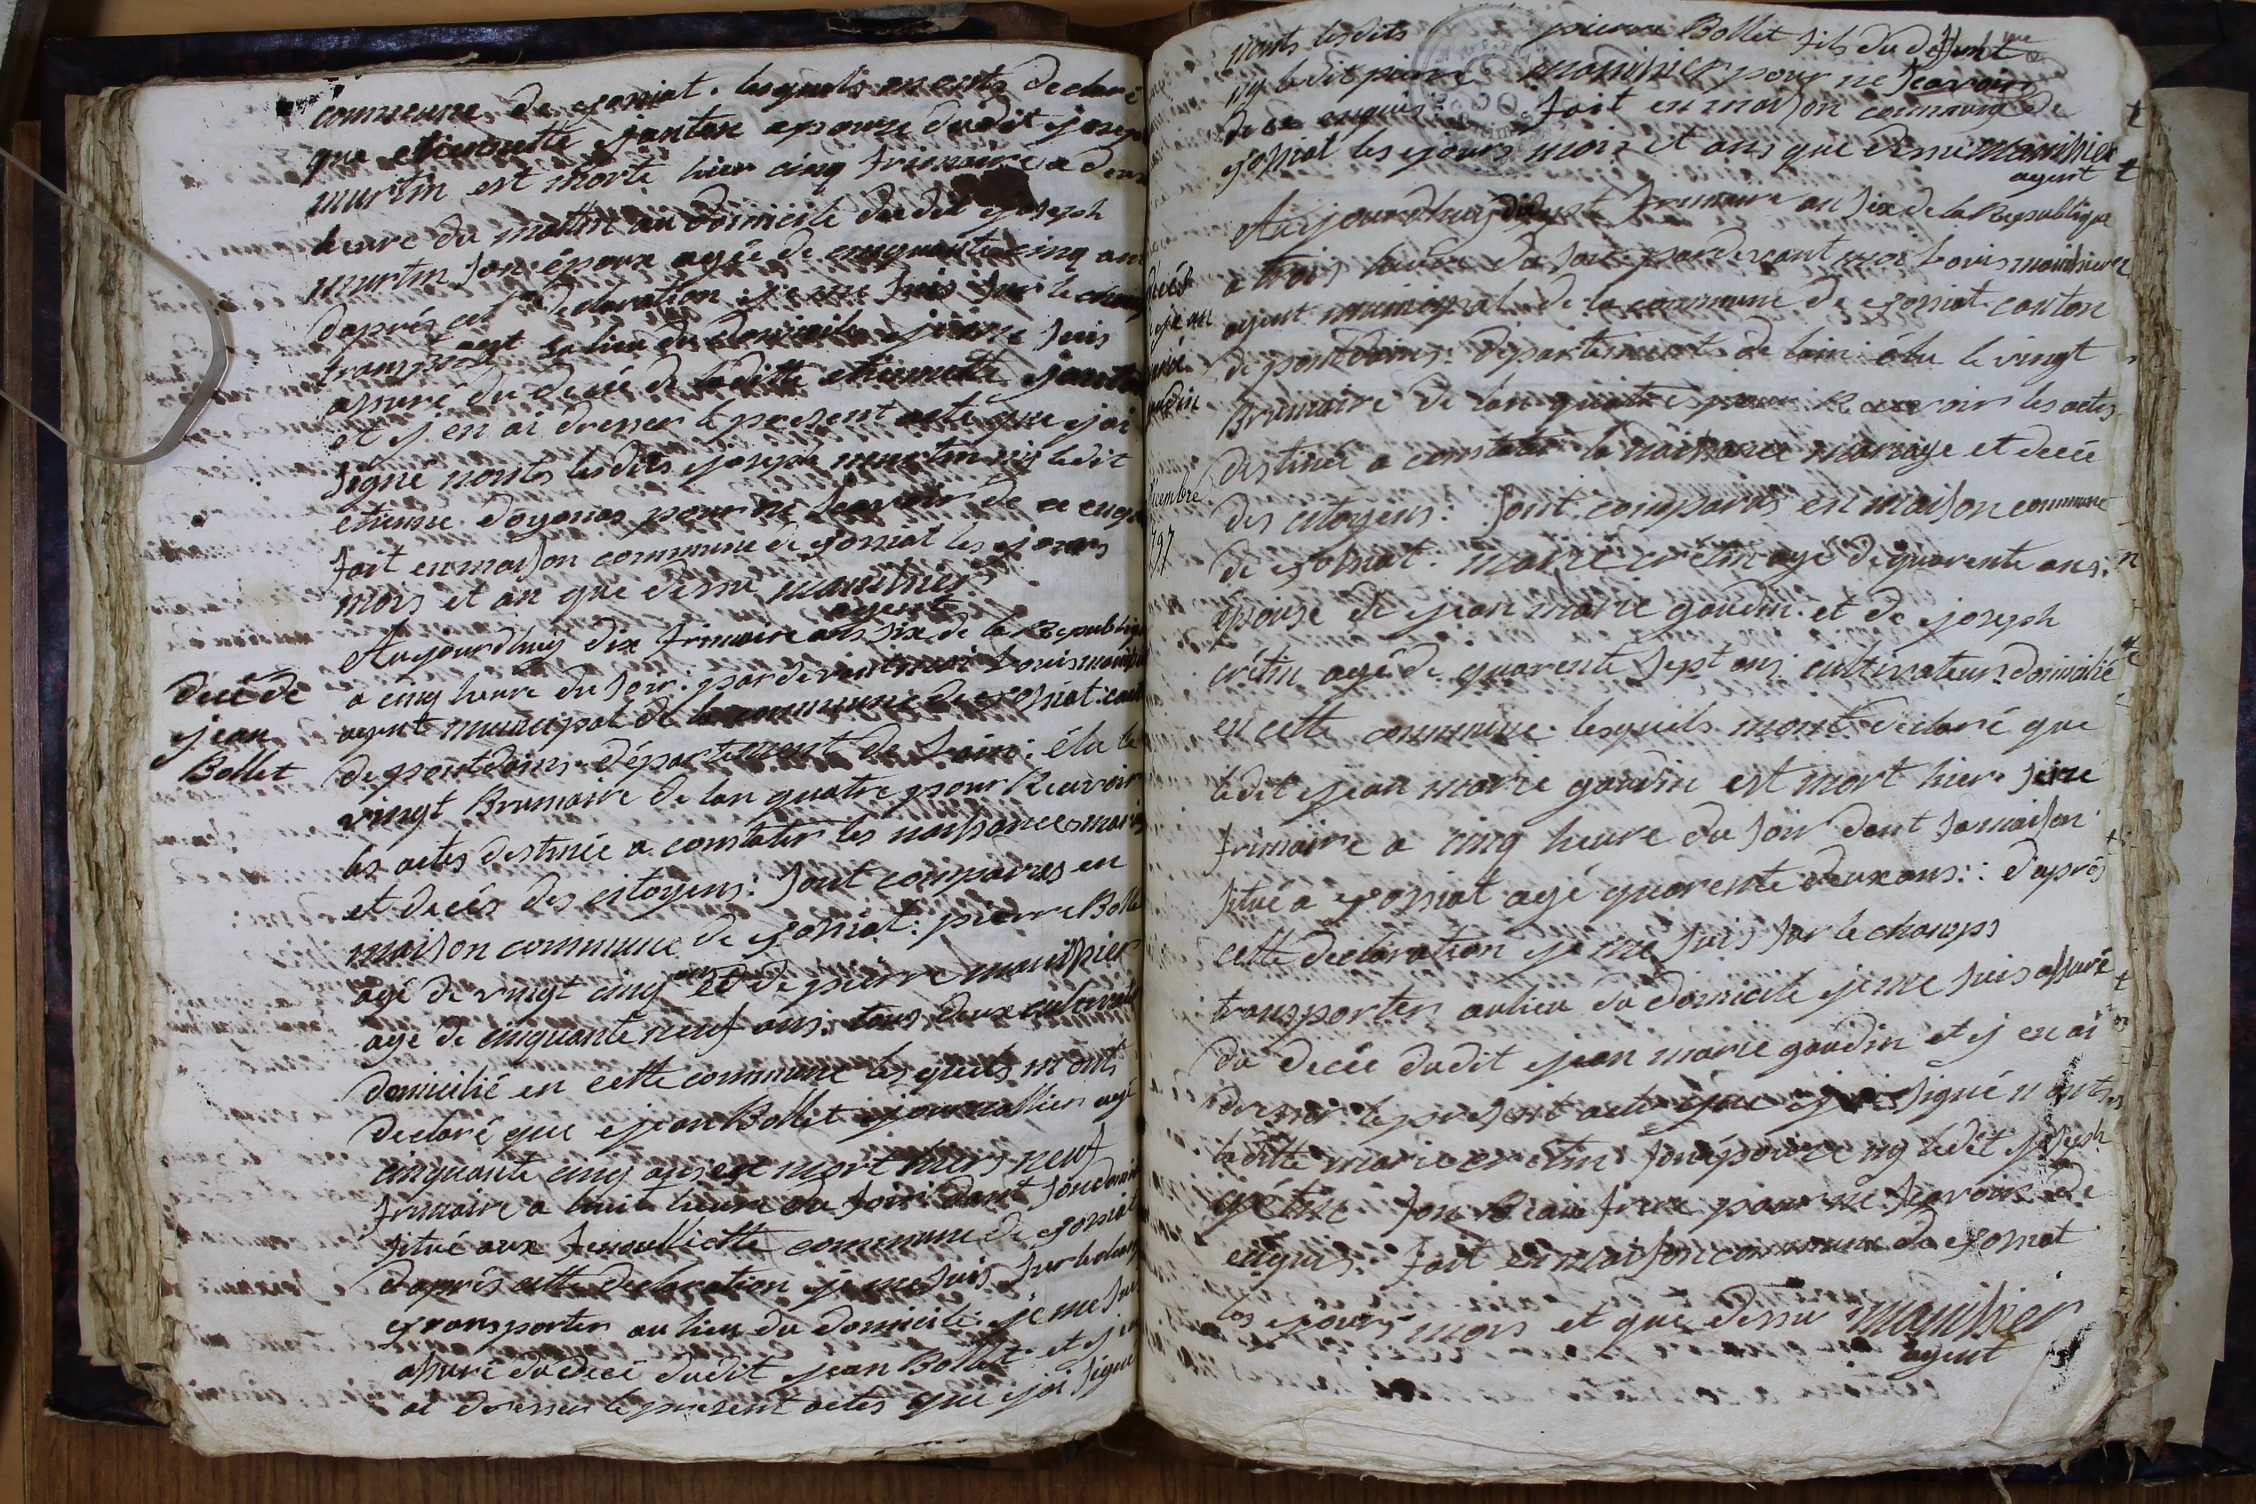 commune de jossiat. lesquels mont declaré
que etiennette janton epouse dudit joseph
murtin est morte hier cinq frimaire a deux
heure du matin au domicile dudit joseph
murtin son époux agée de cinquante cinq ans
daprés cet declaration je me suis sur le champ
transporter au lieu du domicile je me suis
assuré du decée de laditte etiennette janton
et j en ai dresser le present acte que jai
signé nonts les dits joseph murtin ny ledit
etienne doyonas pour ne scavoir de ce enquis
fait en maison commune de jossiat les jours
mois et an que dessu maunier
agent
decé de
jean
Bollet
Aujourdhuy dix frimaire ans six de la Republique
a cinq heure du soir. pardevent moi Louis
agent municipal de la commune de jossiat. canton
de pontdains. département de lain: élu le
vingt Brumaire de lan quatre pour Recevoir
les actes destinée a constater les naissances mariage
et decés des citoyens: sont comparus en
maison commune de jossiat: pierre Bollet
agé de vingt cinq ans et de pierre
agé de cinquante neuf ans: tous deux cultivateur
domicilié en cette commune lesquels mont
declaré que jean Bollet journallier agé
cinquante cinq ans est mort hiers neuf
frimaire a huit heure du soir dont son domicile
situé aux commune de jossiat
daprés cette declaration je me suis sur le champ
transporter au lieu du domicile. je me suis
assuré du decé dudit jean Bollet et j en
ai dresser le present actes que jai signé
nonts lesdits pierre Bollet fils du defunt
ny ledit pierre pour ne scavoir
de ce enquis: fait en maison commune de
jossiat les jours mois et ans que dessu
agent
decés
de jean
marie
gaudin
decembre
1797
Aujourdhuy dix sept frimaire an six de la Republique
a trois heure du soir pardevant moi Louis
agent municipal de la commune de jossiat canton
de pontdains. département de lain: élu le vingt
Brumaire de lan quatre pour Recevoir les actes
destinée a constater la naissance mariage et decée
des citoyens: sont comparus en maison commune
de jossiat: marie crétin agé de quarente ans
épouse de jean marie gaudin. et de joseph
crétin agé de quarente sept ans cultivateurs domicilié
en cette commune. lesquels mont declaré que
ledit jean marie gaudin est mort hier seize
frimaire a cinq heure du soir dont sa maison
situé a jossiat agé quarente deux ans: d'aprés
cette declaration je me suis sur le champs
transporter au lieu du domicile je me suis assuré
du decée dudit jean marie gaudin et j en ai
dresser le present acte que j ai signé nonts
laditte marie cretin son épouse ny ledit joseph
crétin son Beau frere pour ne scavoir de
enquis. fait en maison commune de jossiat
les jours mois et que dessu
agent